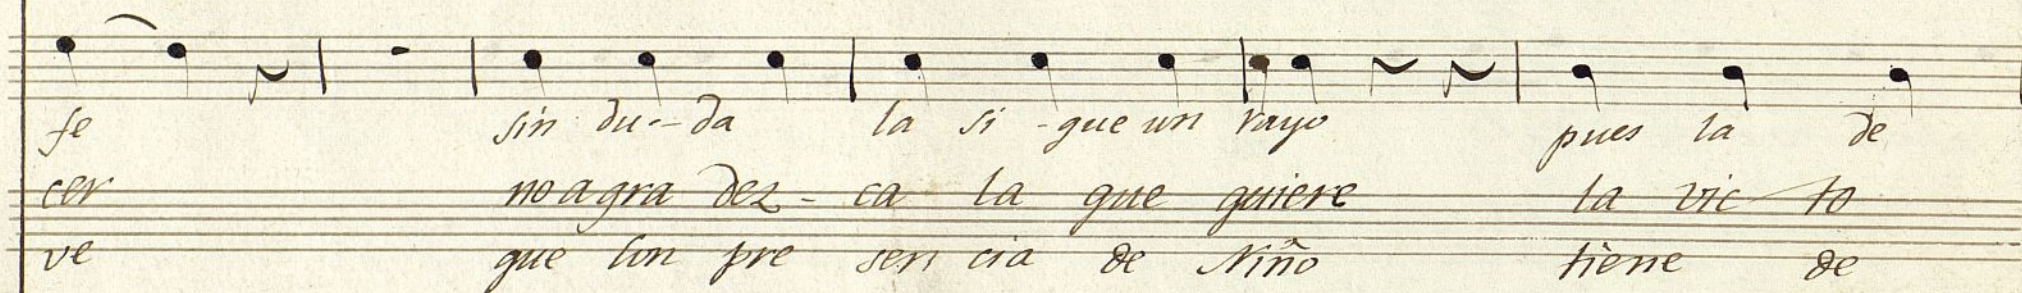 fe sin du-da la si-gue un rayo pues la de
cer no agra dez-ca la que quiere la vic-to
ve que con pre sen cia de Niño tiene de